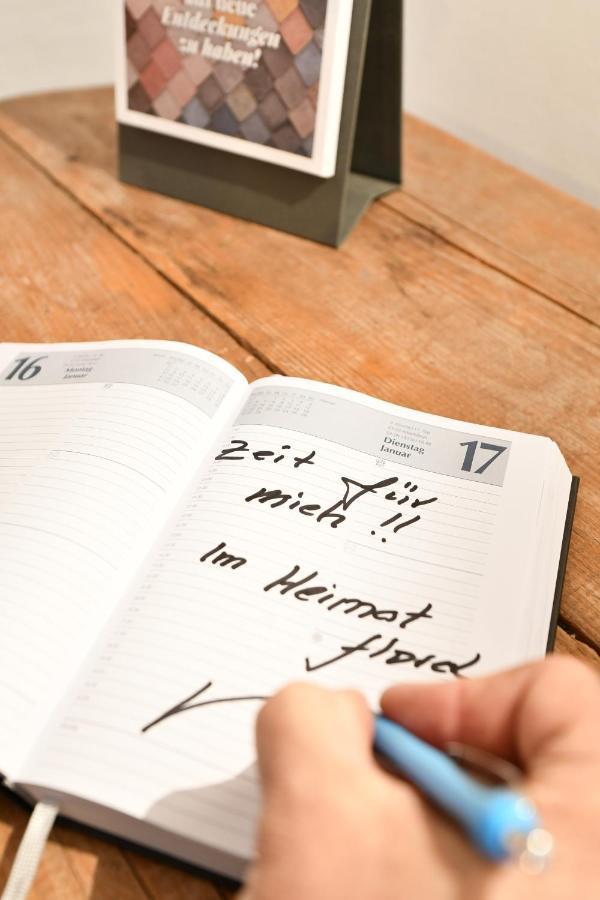 neue
Entdeckungen
zu haben!
16
Montag
Januar
Dienstag
Januar
17
Zeit für
mich !!
Im Heimat